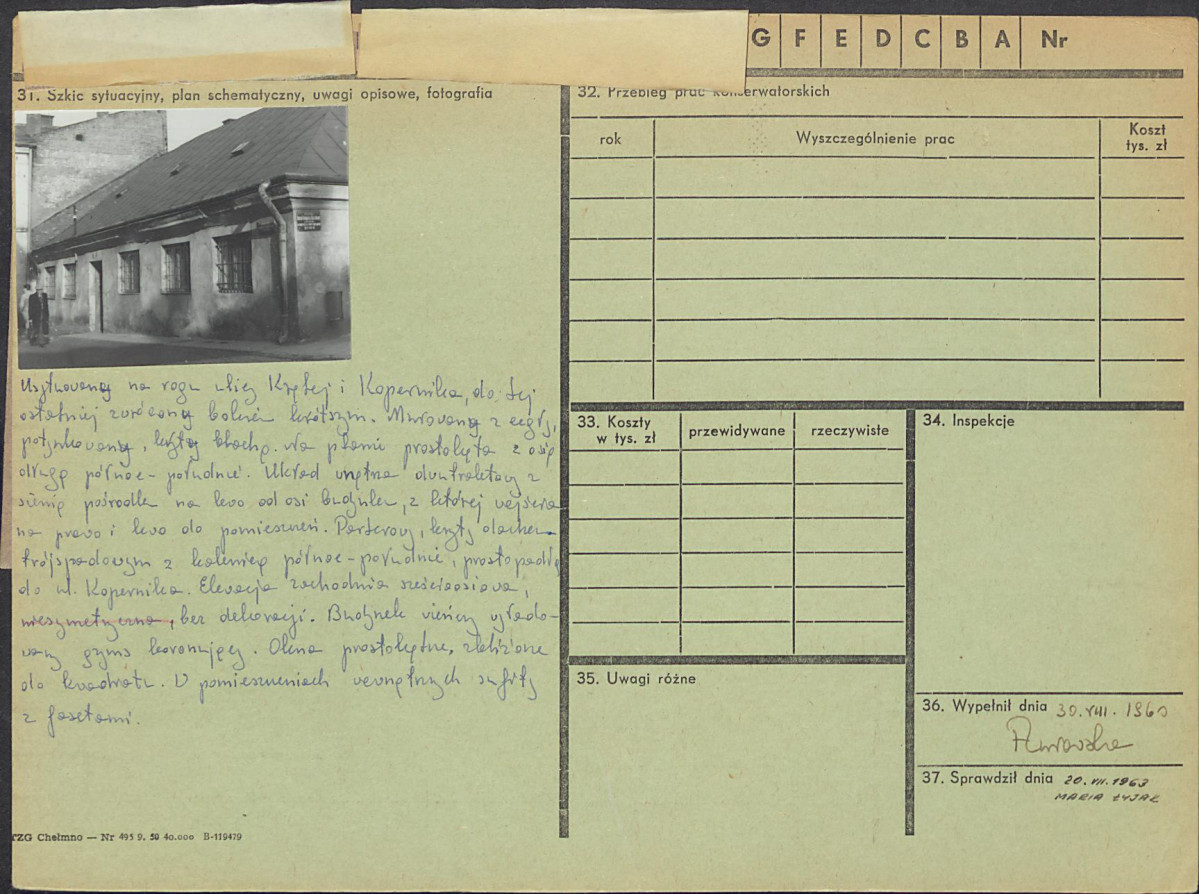 G F E D C B A Nr
31. Szkic sytuacyjny, plan schematyczny, uwagi opisowe, fotografia
Usytuowany na rogu ulicy Krętej i Kopernika, do tej
ostatniej zwrócony bokiem krótszym. Murowany z cegły,
potynkowany, kryty blachą. Na planie prostokąta z osią
długą północ-południe. Układ wnętrza dwutraktowy z
sienią pośrodku na lewo od osi budynku, z której wejścia
na prawo i lewo do pomieszczeń. Parterowy, kryty dachem
trójspadowym z kalenicą północ-południe, prostopadłą
do ul. Kopernika. Elewacja zachodnia sześcioosiowa,
niesymetryczna, bez dekoracji. Budynek wieńczy wyłado-
wany gzyms koronujący. Okna prostokątne, zbliżone
do kwadratu. W pomieszczeniach wewnętrznych sufity
z fasetami.
TZG Chełmno — Nr 495 9. 59 40.000 B-119479
32. Przebieg prac konserwatorskich
rok Wyszczególnienie prac Koszt
tys. zł
33. Koszty
w tys. zł przewidywane rzeczywiste
34. Inspekcje
35. Uwagi różne
36. Wypełnił dnia 30.VIII.1960
37. Sprawdził dnia 20.VII.1963
MARIA ŁYJAK